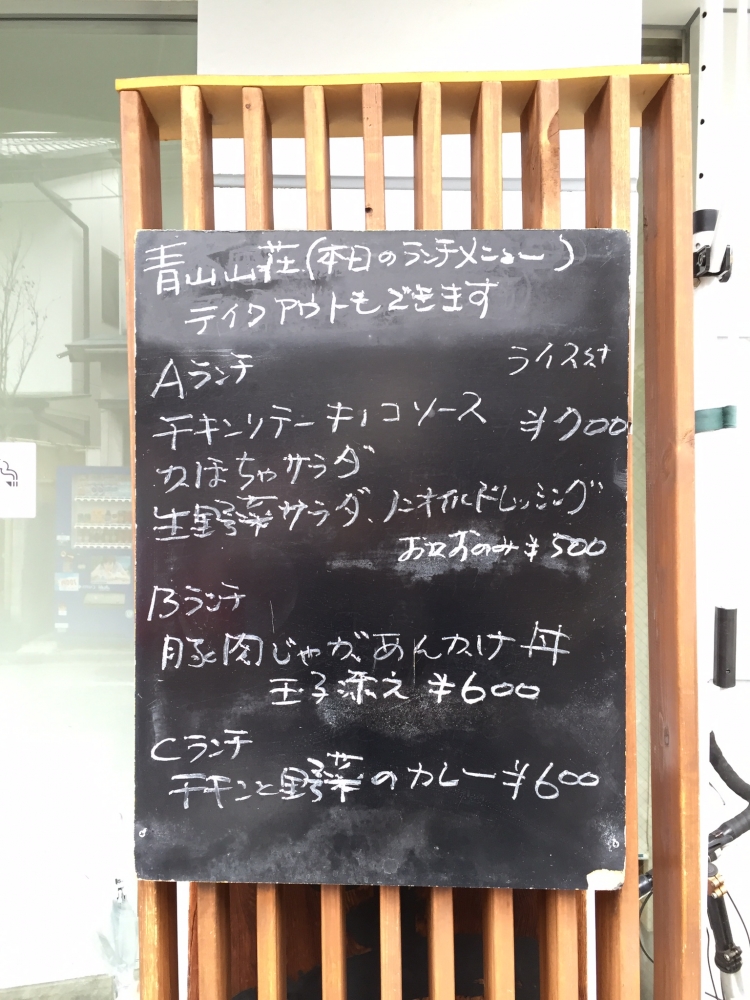 青山山荘(本日のランチメニュー)
テイクアウトもできます
Aランチ ライス付
チキンソテーキノコソース ¥700
かぼちゃサラダ
生野菜サラダ、ノンオイルドレッシング
¥500
Bランチ
豚肉じゃが、あんかけ丼
玉子添え ¥600
Cランチ
チキンと野菜のカレー ¥600